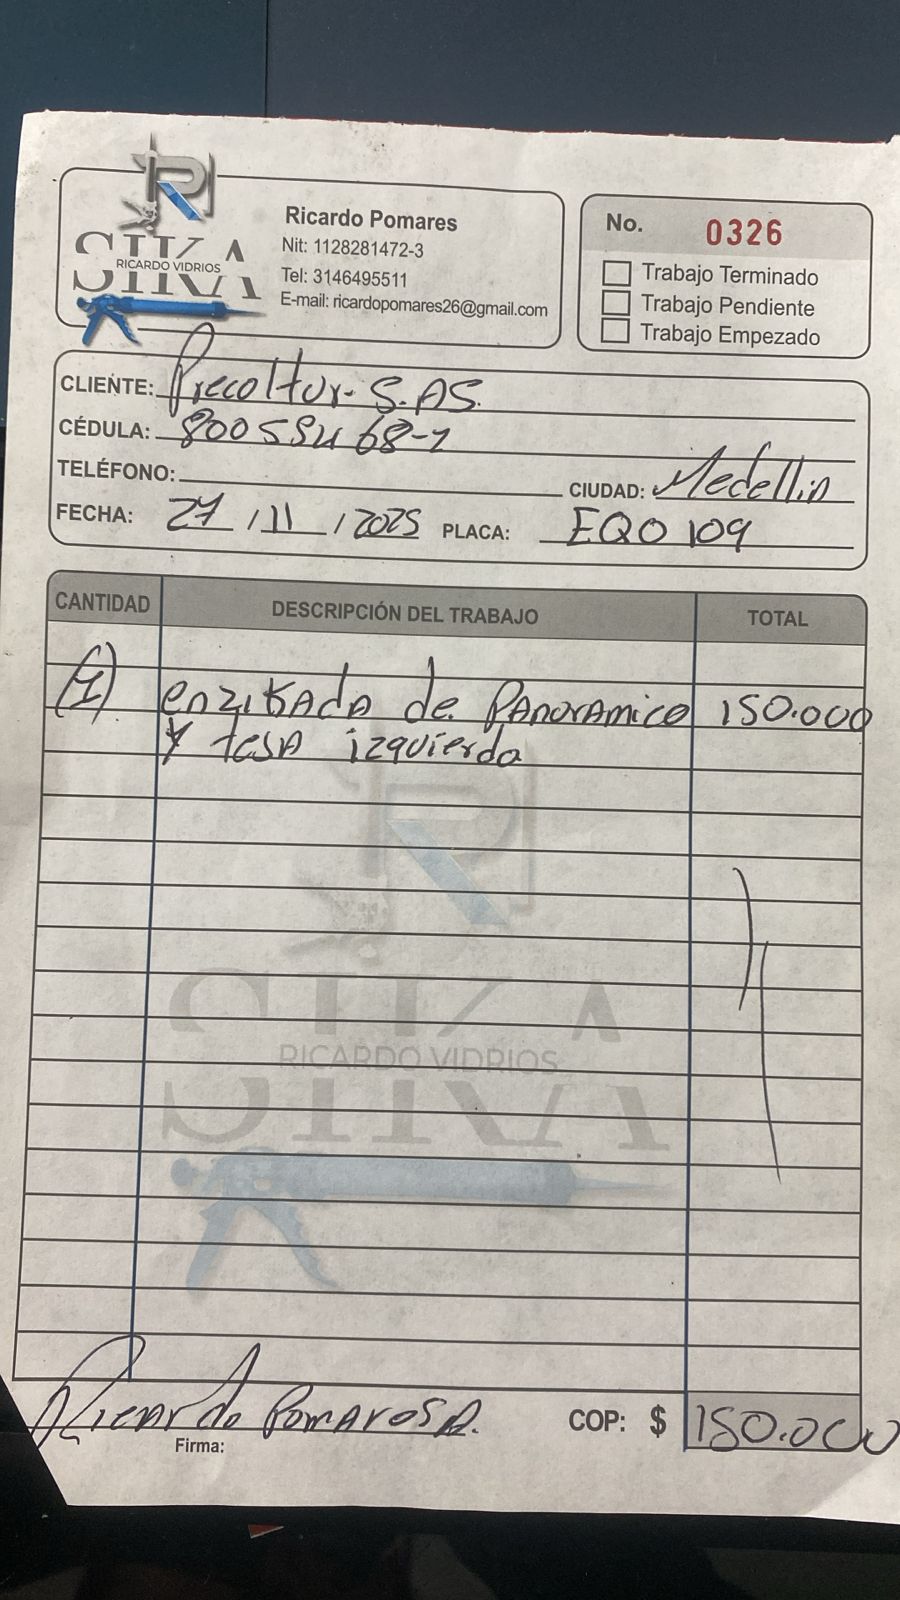 Ricardo Pomares
Nit: 1128281472-3
Tel: 3146495511
E-mail: ricardopomares26@gmail.com
SIKA
RICARDO VIDRIOS
No. 0326
Trabajo Terminado
Trabajo Pendiente
Trabajo Empezado
CLIENTE: Precoltur. S.AS.
CÉDULA: 
TELÉFONO:
CIUDAD: Medellin
FECHA: 27 / 11 / 2025 PLACA: EQO 109
CANTIDAD DESCRIPCIÓN DEL TRABAJO TOTAL
(1) enzikada de PANORAMICO 150.000
y tesa izquierda
SIKA
RICARDO VIDRIOS
Ricardo Pomares
Firma:
COP: $ 150.000